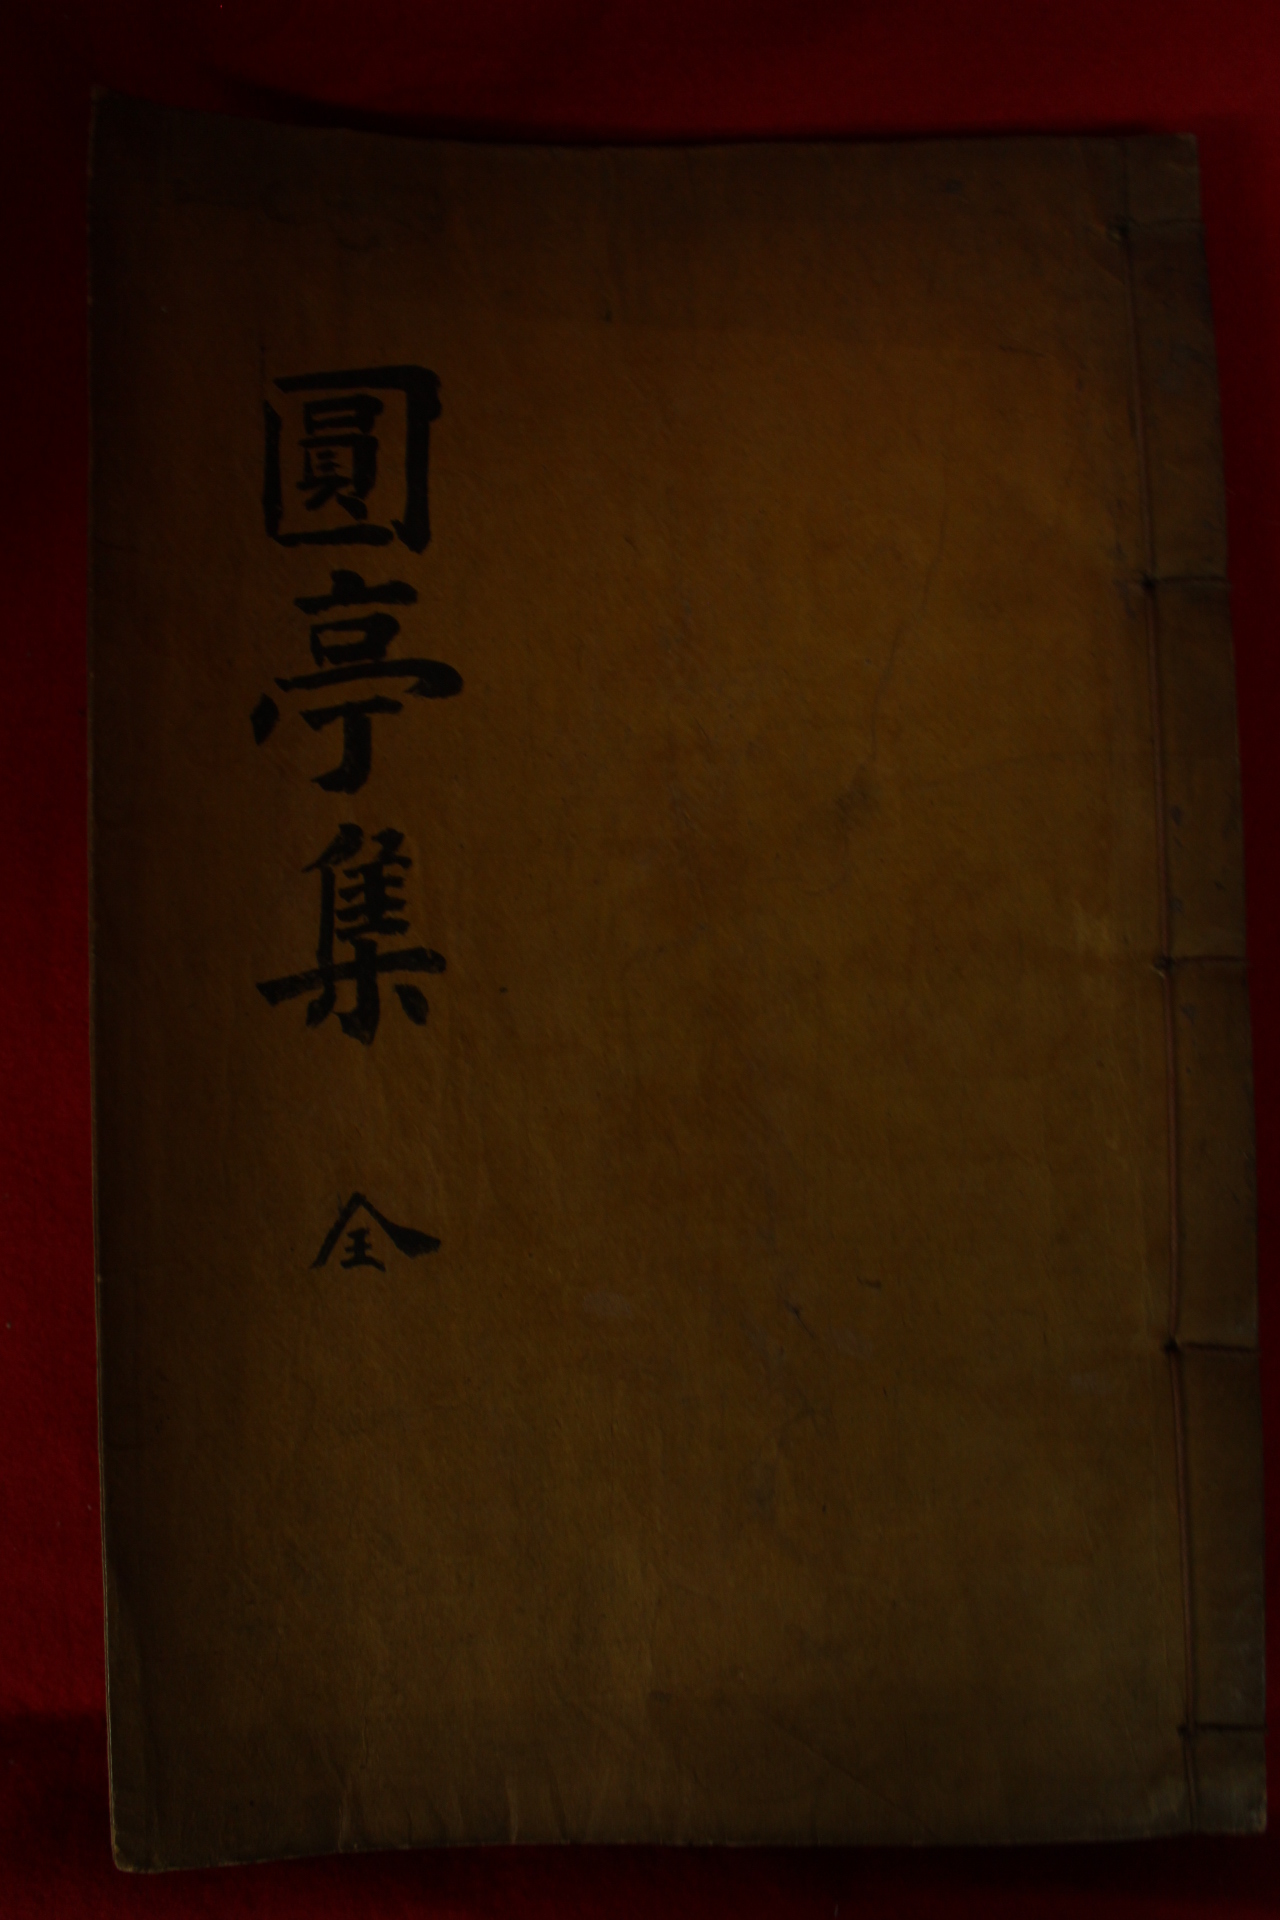 圓亭集 全